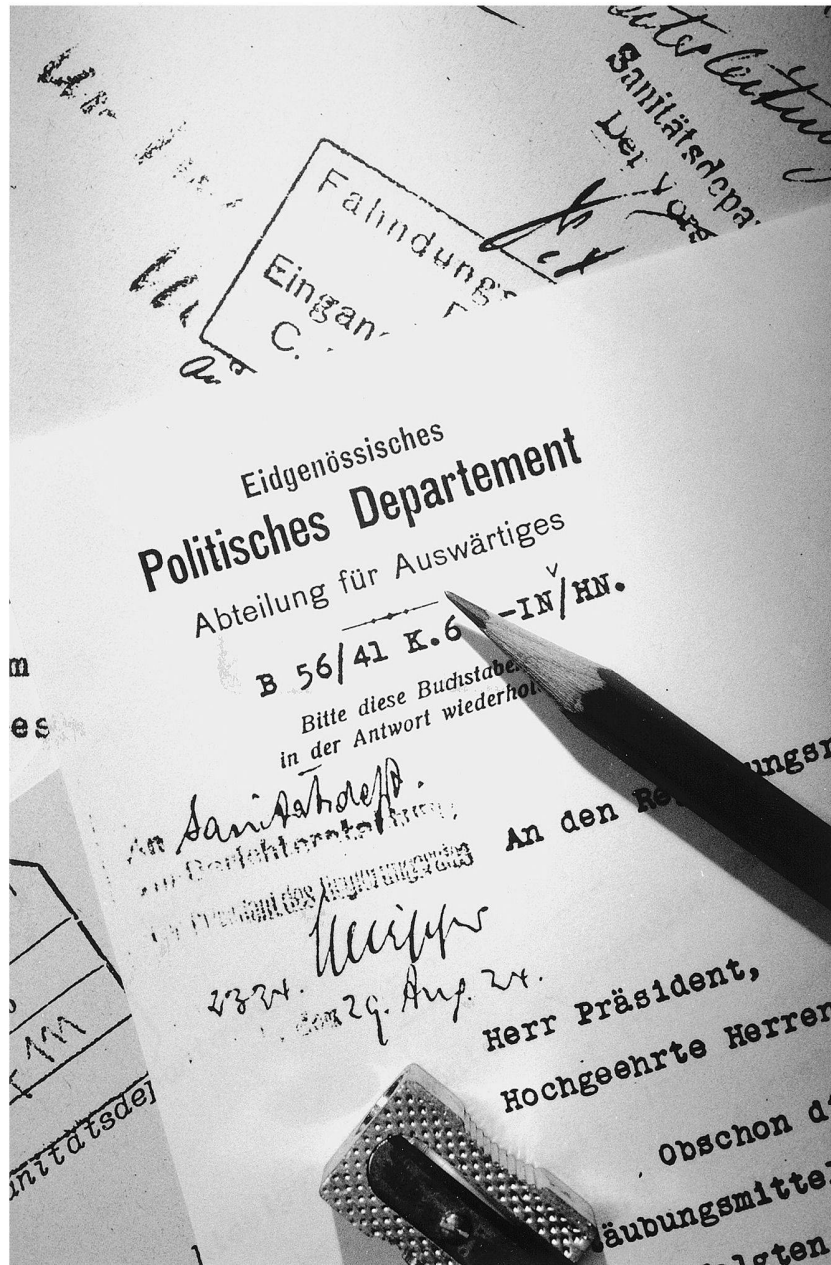 Sanitätsdepa
Der Vors
Fahndungs
Eingan
C.
Eidgenössisches
Politisches Departement
Abteilung für Auswärtiges
B 56/41 K.6 -IN/HN.
Bitte diese Buchstabe
in der Antwort wiederhol
An Sanitätsdept.
zur Berichterstattung
Der Präsident des Regierungsrates
2324.
den 29. Aug. 24.
An den Re ungsr
Herr Präsident,
Hochgeehrte Herren
Obschon di
äubungsmittel
lgten
m
es
anitätsdep